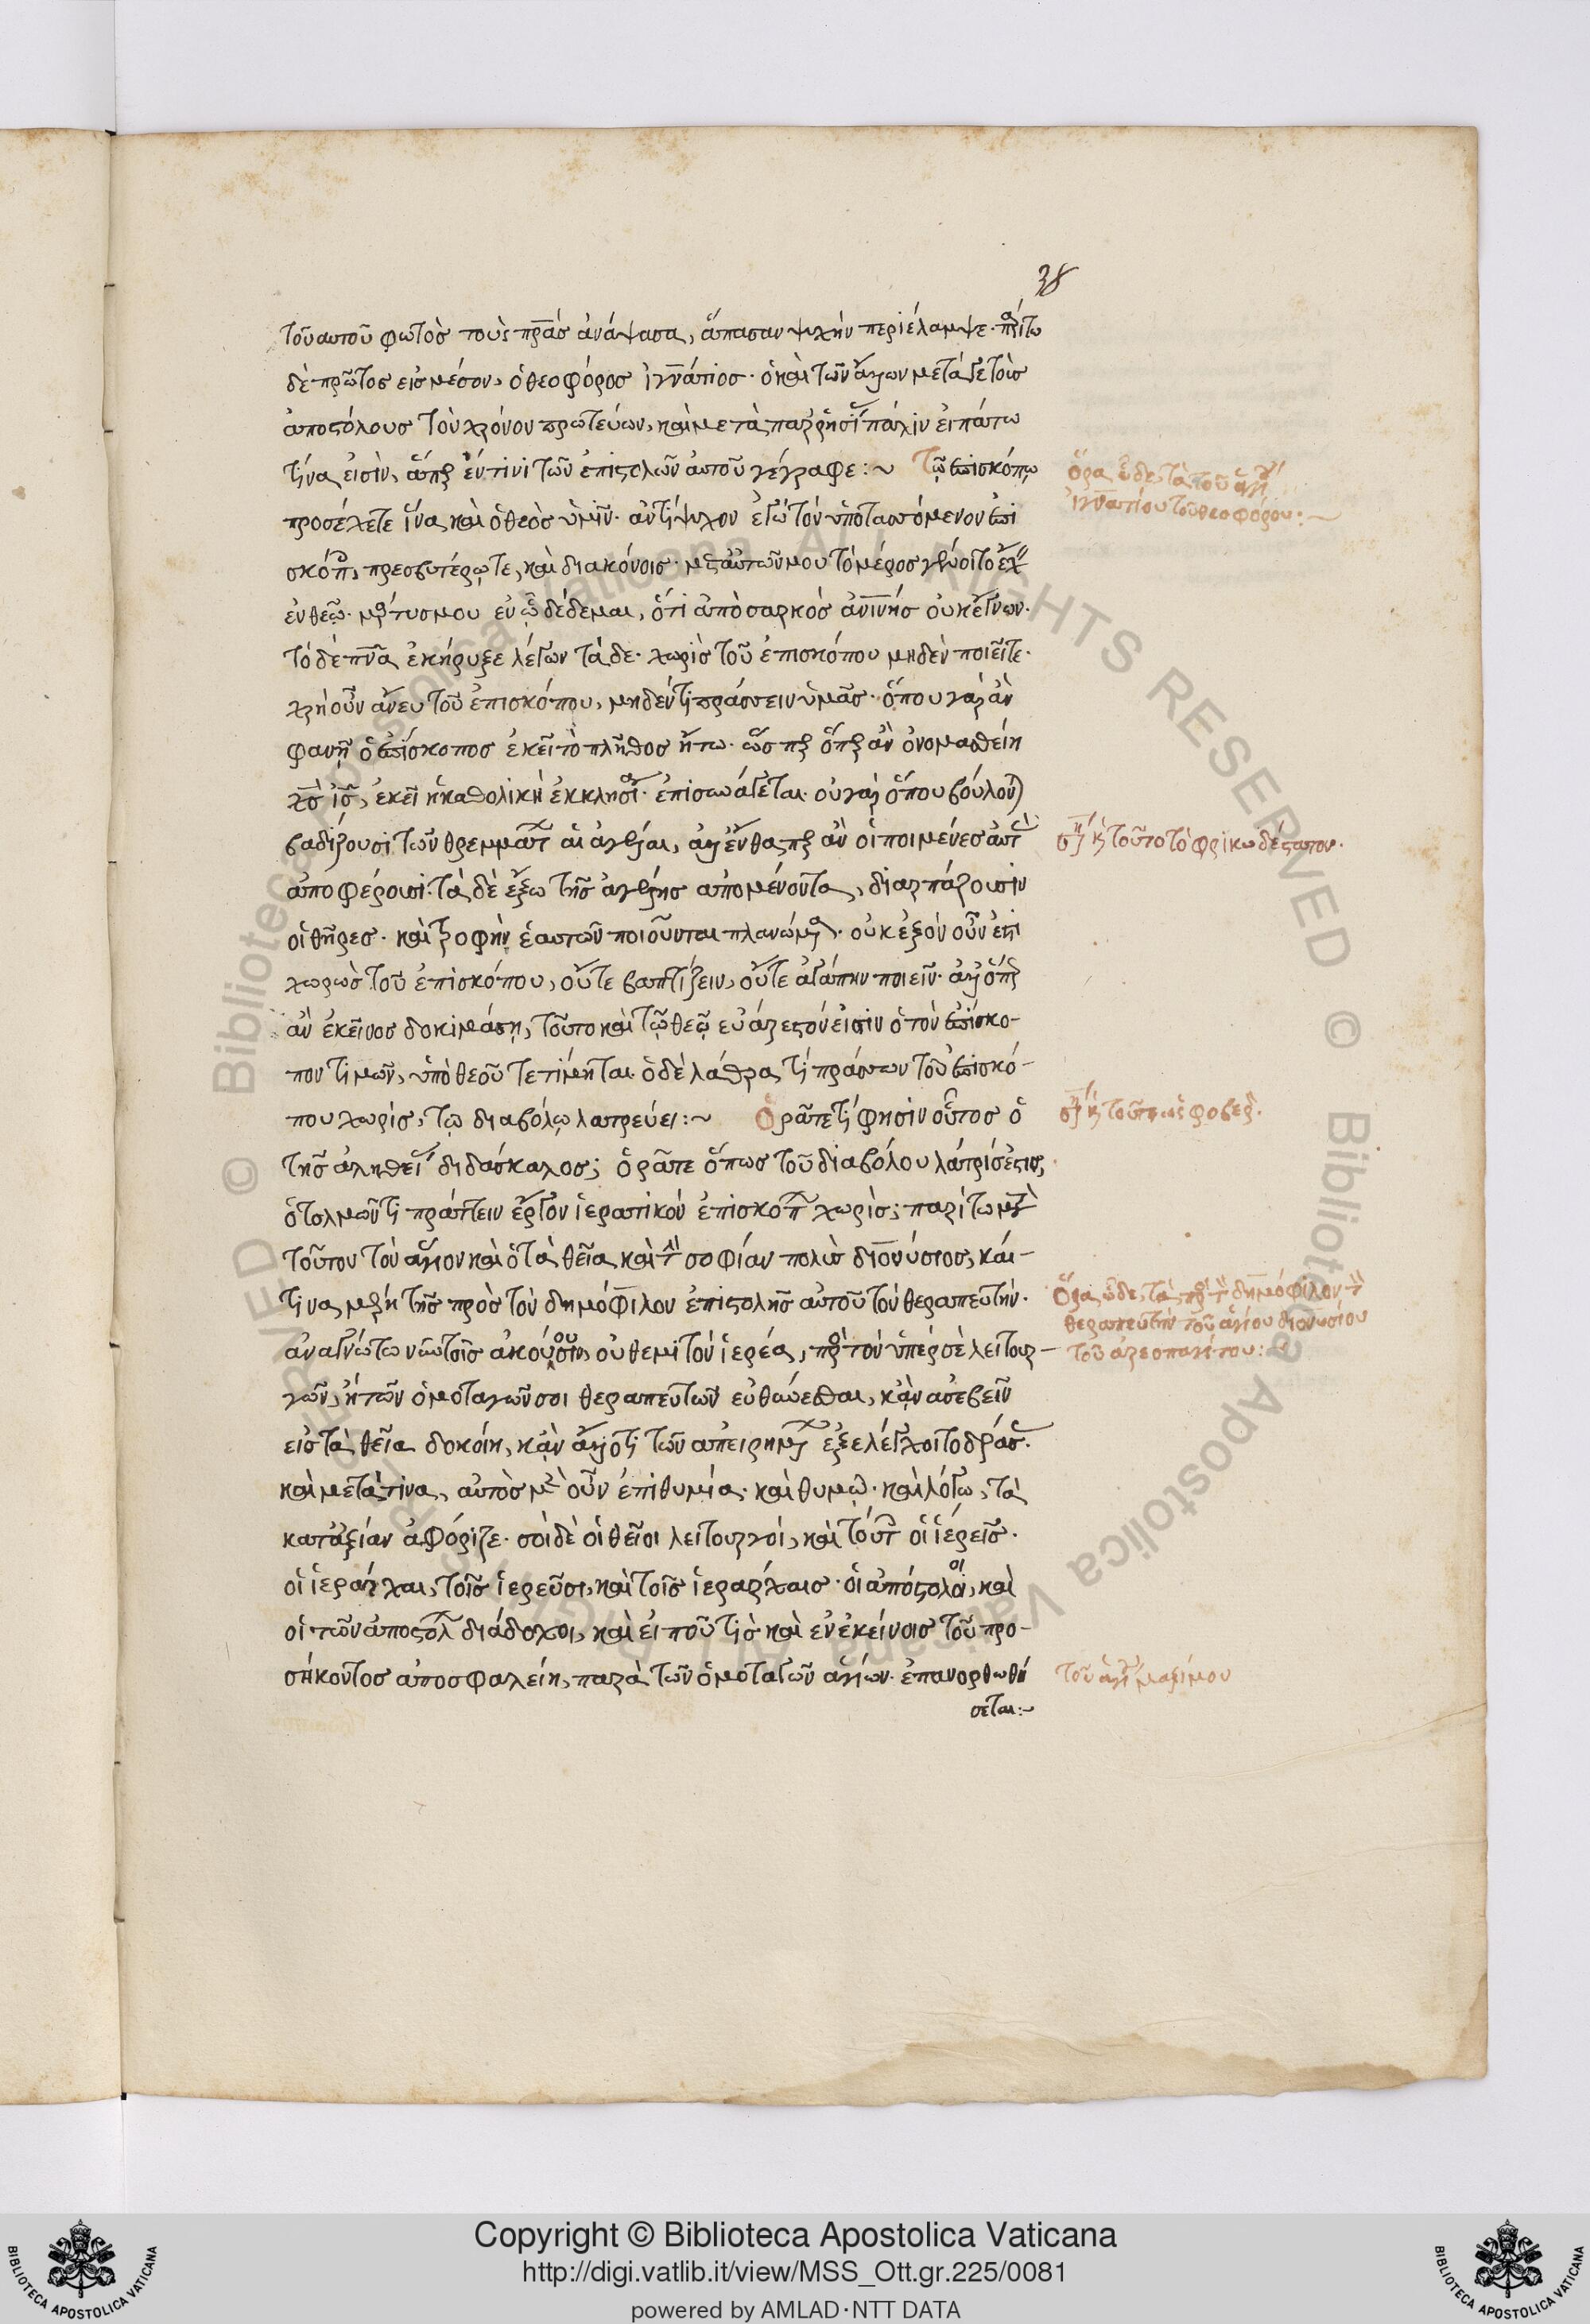 38
τοῦ αυτοῦ φωτὸσ τοὺς πρ̅ασ ἀνάψασα, ἅπασαν ψυχὴν περιέλαμψε· παρίτω
δὲ πρῶτοσ εἰσ μέσον, ὁ θεοφόροσ ἰγνάτιοσ· ὁ καὶ τῶν ἄλλων μετά γε τοὺσ
ἀποστόλουσ τὸν χρόνον πρωτεύων, καὶ μετὰ παρρησί πάλιν ειπάτω
τίνα εἰσὶν, ἅπερ ἔν τινι τῶν ἐπιστολῶν ἀυτοῦ γέγραφε:~ Τῷ ἐπισκόπῳ
προσέχετε ἵνα καὶ ὁ θεὸσ ὑμῖν· ἀντίψυχον ἐγὼ τῶν ὑποτασσόμενον ἐπι
σκόπ, πρεσβυτέρῳ τε, καὶ διακόνοισ· μετ' ἀυτῶν μου τὸ μέροσ γένοιτο ἔχ
ἐν θεῷ· μάρτυσ μου ἐν ᾧ δέδεμαι, ὅτι ἀπὸ σαρκόσ ἀν̅ι̅νησ οὐκ ἔγνων·
τὸ δὲ πν̅α ἐκήρυξε λέγων τάδε· χωρὶσ τοῦ ἐπισκόπου μηδὲν ποιεῖτε·
χρὴ οὖν ἄνευ τοῦ ἐπισκόπου, μηδέν τι πράσσειν ὑμᾶσ· ὅπου γὰρ ἂν
φανῇ ὁ ἐπίσκοποσ ἐκεῖ τὸ πλῆθοσ ἤτω· ὥσπερ ὅπερ ἂν ὀνομασθείη
χ̅σ̅ ι̅σ̅, ἐκεῖ ἡ καθολικὴ ἐκκλησί· ἐπισυνάγεται· οὐ γὰρ ὅπου βούλον
βαδίζουσι τῶν θρεμμάτ αἱ ἀγέλαι, ἀλλ' ἔνθαπερ ἂν οἱ ποιμένεσ ἀυτ
ἀποφέρουσι· τὰ δὲ ἔξω τῆσ ἀγέλησ ἀπομένοντα, διαρπάζουσιν
οἱ θῆρεσ· καὶ τροφὴν ἑαυτῶν ποιοῦνται πλανώμ· οὐκ ἐξὸν οὖν ἐστι
χωρὶσ τοῦ ἐπισκόπου, οὔτε βαπτίζειν, οὔτε ἀγάπην ποιεῖν· ἀλλ' ὅπερ
ἂν ἐκεῖνοσ δοκιμάσῃ, τοῦτο καὶ τῷ θεῷ εὐάρεστόν εἰσιν ὁ τὸν ἐπίσκο-
πον τιμῶν, ὑπὸ θεοῦ τετίμηται· ὁ δὲ λάθρα τί πράσσων τοῦ ἐπισκό-
που χωρίσ, τῷ διαβόλῳ λατρεύει:~ Ὁρᾶτε τί φησὶν οὗτοσ ὁ
τῆσ ἀληθεί διδάσκαλοσ; ὁρᾶτε ὅπωσ τοῦ διαβόλου λάτρισ ἐστιν,
ὁ τολμῶν τι πράττειν ἔργον ἱερατικὸν ἐπισκόπ χωρίσ; παρίτω μετὰ
τοῦτον τὸν ἅγιον καὶ ὁ τὰ θεῖα καὶ τὴν σοφίαν πολὺσ διονύσιοσ, κάι-
τινα μέρη τῆσ πρὸσ τὸν δημόφιλον ἐπιστολῆσ αὐτοῦ τὸν θεραπευτὴν·
ἀναγνώτω νῦν τοῖσ ἀκούουσιν, οὐ θεμιτὸν ἱερέα, πρὸσ τῶν ὑπὲρ σὲ λειτουρ-
γῶν, ἢ τῶν ὁμοταγῶν σοι θεραπευτῶν εὐθύνεσθαι, κἂν ἀσεβεῖν
εἰσ τὰ θεῖα δοκοίη, κἂν ἄλλό τι τῶν ἀπειρημ ἐξελέγχοιτο δράσ·
καὶ μετά τινα, αὐτὸσ μὲν οὖν ἐπιθυμία· καὶ θυμῷ· καὶ λόγω, τὰ
κατ' ἀξίαν ἀφόριζε· σοὶ δὲ οἱ θεῖοι λειτουργοί, καὶ τούτ οἱ ἱερεῖσ·
οἱ ἱεράρχαι, τοῖσ ἱερεῦσι, καὶ τοῖσ ἱεράρχαισ· οἱ ἀπόστολοι, καὶ
οἱ τῶν ἀποστόλ διάδοχοι, καὶ εἰ πού τισ καὶ ἐν ἐκείνοισ τοῦ προ-
σήκοντοσ ἀποσφαλείη, παρὰ τῶν ὁμοταγῶν ἁγίων· ἐπανορθωθή
σεται:~
ὅρα ὧδε, τὰ τοῦ ἁγί
ἰγνατίου τοῦ θεοφόρου:~
σῆ κ τοῦτο τὸ φρικωδέστατον·
σῆ κ τοῦτο ὡς φοβερ·
Ὅρα ὧδε, τὰ πρὸς τ δημόφιλον τ
θεραπευτὴν τοῦ ἁγίου διονυσίου
τοῦ ἀρεοπαγίτου:
τοῦ ἁγί μαξίμου
Copyright © Biblioteca Apostolica Vaticana
http://digi.vatlib.it/view/MSS_Ott.gr.225/0081
powered by AMLAD·NTT DATA
BIBLIOTECA APOSTOLICA VATICANA
BIBLIOTECA APOSTOLICA VATICANA